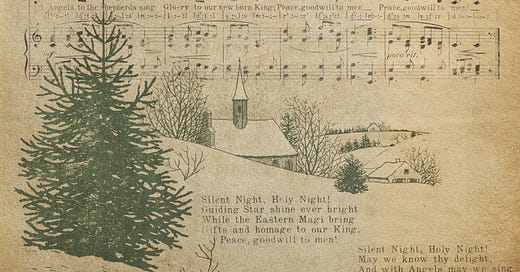 Angels to the shepherds sing. Glo-ry to our new born King; Peace, goodwill to men Peace, goodwill to men!
poco rit.
Silent Night, Holy Night!
Guiding Star shine ever bright
While the Eastern Magi bring
Gifts and homage to our King,
Peace, goodwill to men!
Silent Night, Holy Night!
May we know thy delight,
And with Angels may we sing